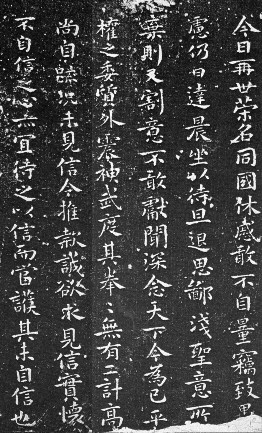 今日再世榮名同國休慼敢不自量竊致愚
慮仍日達晨坐以待旦退思鄙淺聖意所
棄則又割意不敢獻聞深念天下今為已平
權之委質外震神武度其拳〻無有二計高
尚自疏況未見信今推款誠欲求見信實懷
不自信之心亦宜待之以信而當護其未自信也